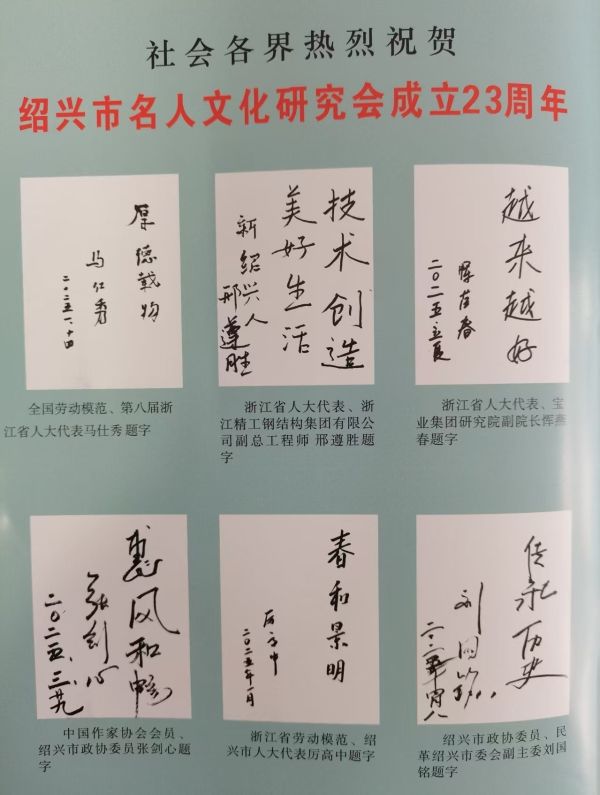 社会各界热烈祝贺
绍兴市名人文化研究会成立23周年
厚德载物
马仕秀
二〇二五、一、十四
全国劳动模范、第八届浙
江省人大代表马仕秀题字
技术创造
美好生活
新绍兴人
邢遵胜
浙江省人大代表、浙
江精工钢结构集团有限公
司副总工程师 邢遵胜题
字
越来越好
恽燕春
二〇二五立夏
浙江省人大代表、宝
业集团研究院副院长恽燕
春题字
惠风和畅
张剑心
二〇二五、三、廿九
中国作家协会会员、
绍兴市政协委员张剑心题
字
春和景明
厉高中
二〇二五年一月
浙江省劳动模范、绍
兴市人大代表厉高中题字
传承历史
刘国铭
绍兴市政协委员、民
革绍兴市委会副主委刘国
铭题字